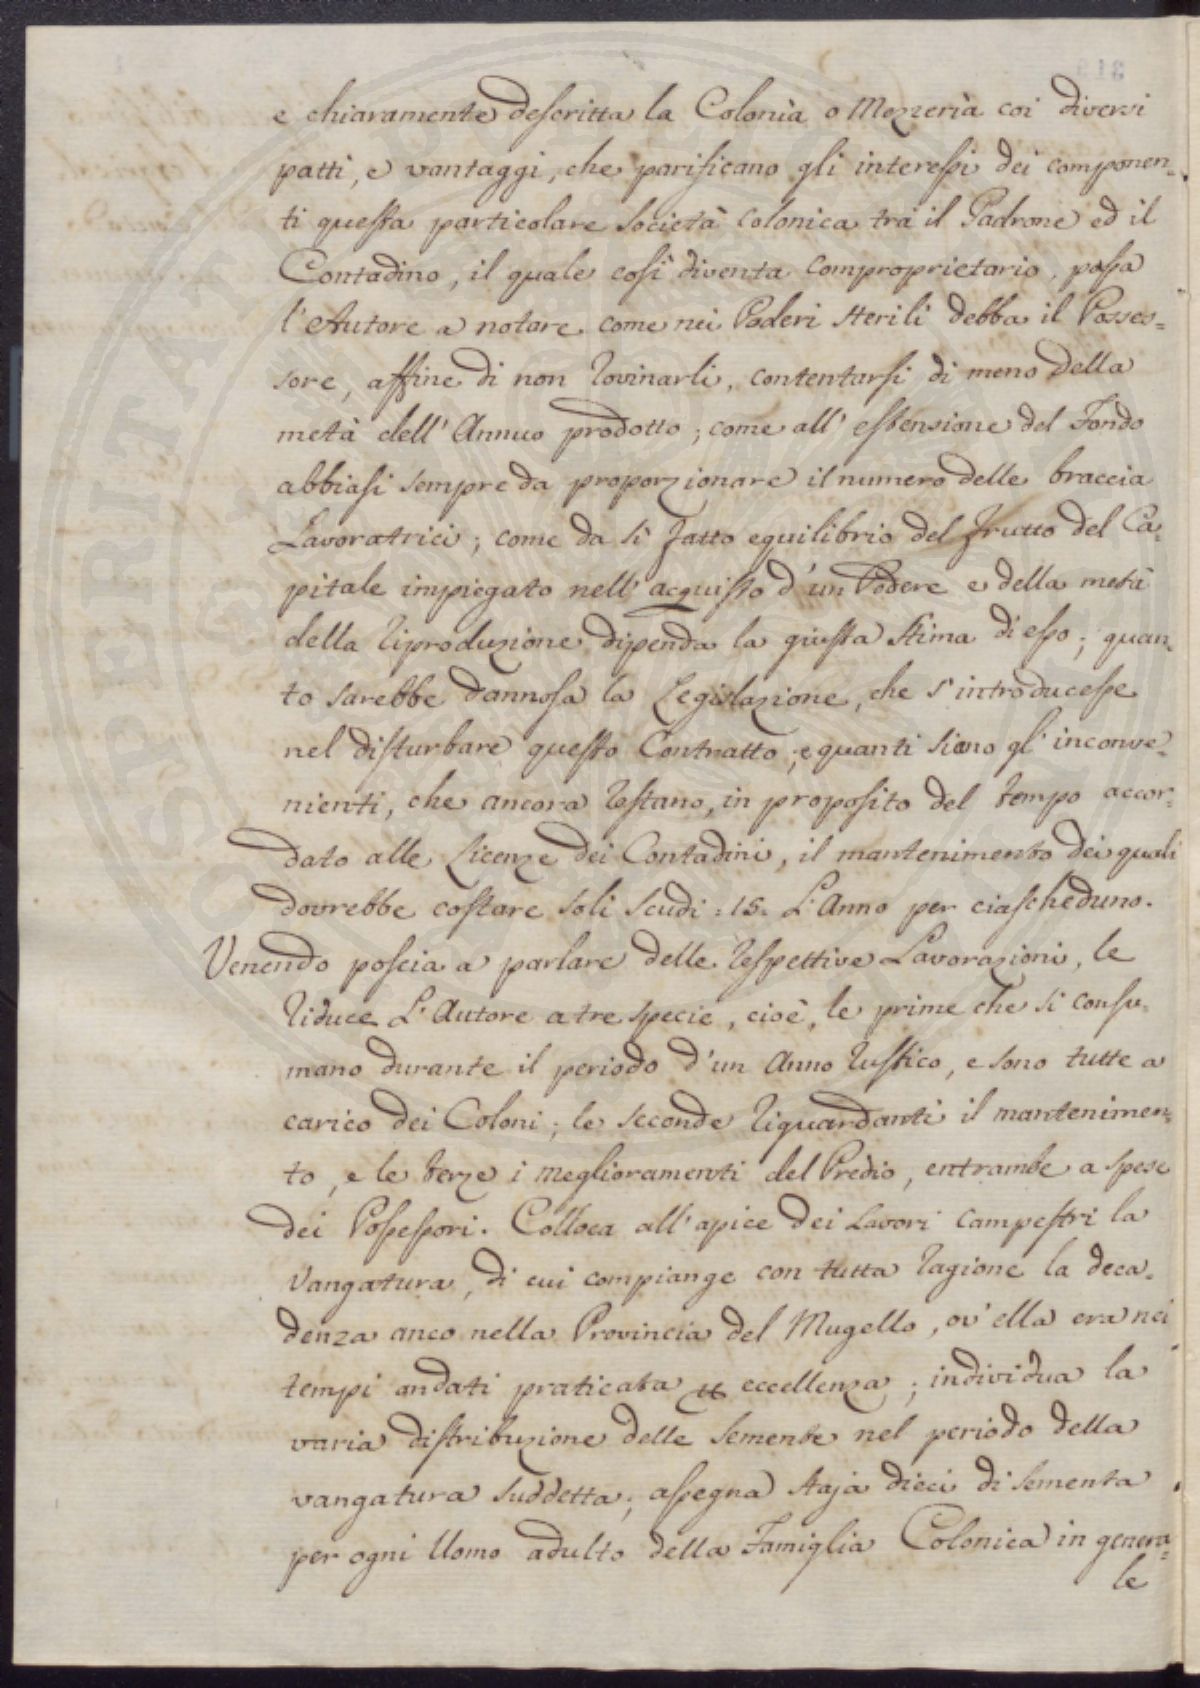 e chiaramente descritta la Colonìa o Mezzerìa coi diversi
patti, e vantaggi, che parificano gli interessi dei componen=
ti questa particolare Società Colonica trà il Padrone ed il
Contadino, il quale così diventa comproprietario, passa
l'Autore a notare come nei Poderi sterili debba il Posses=
sore, affine di non rovinarli, contentarsi di meno della
metà dell'Annuo prodotto; come all'estensione del Fondo
abbiasi sempre da proporzionare il numero delle braccia
Lavoratrici; come da sì fatto equilibrio del frutto del Ca=
pitale impiegato nell'acquisto d'un Podere e della metà
della riproduzione dipenda la giusta stima di esso; quan=
to sarebbe dannosa la Legislazione, che s'introducesse
nel disturbare questo Contratto; e quanti siano gl'inconve=
nienti, che ancora restano, in proposito del tempo accor=
dato alle Licenze dei Contadini, il mantenimento dei quali
dovrebbe costare soli scudi =15= L'Anno per ciascheduno.
Venendo poscia a parlare delle respettive Lavorazioni, le
riduce L'Autore a tre specie, cioè, le prime che si consu=
mano durante il periodo d'un Anno rustico, e sono tutte a
carico dei Coloni; le seconde riguardanti il mantenimen=
to, e le terze i meglioramenti del Predio, entrambe a spese
dei Possessori. Colloca all'apice dei Lavori campestri la
Vangatura, di cui compiange con tutta ragione la deca=
denza anco nella Provincia del Mugello, ov'ella era nei
tempi andati praticata eccellenza; individua la
varia distribuzione delle semente nel periodo della
vangatura suddetta; assegna staja dieci di sementa
per ogni Uomo adulto della Famiglia Colonica in genera=
le